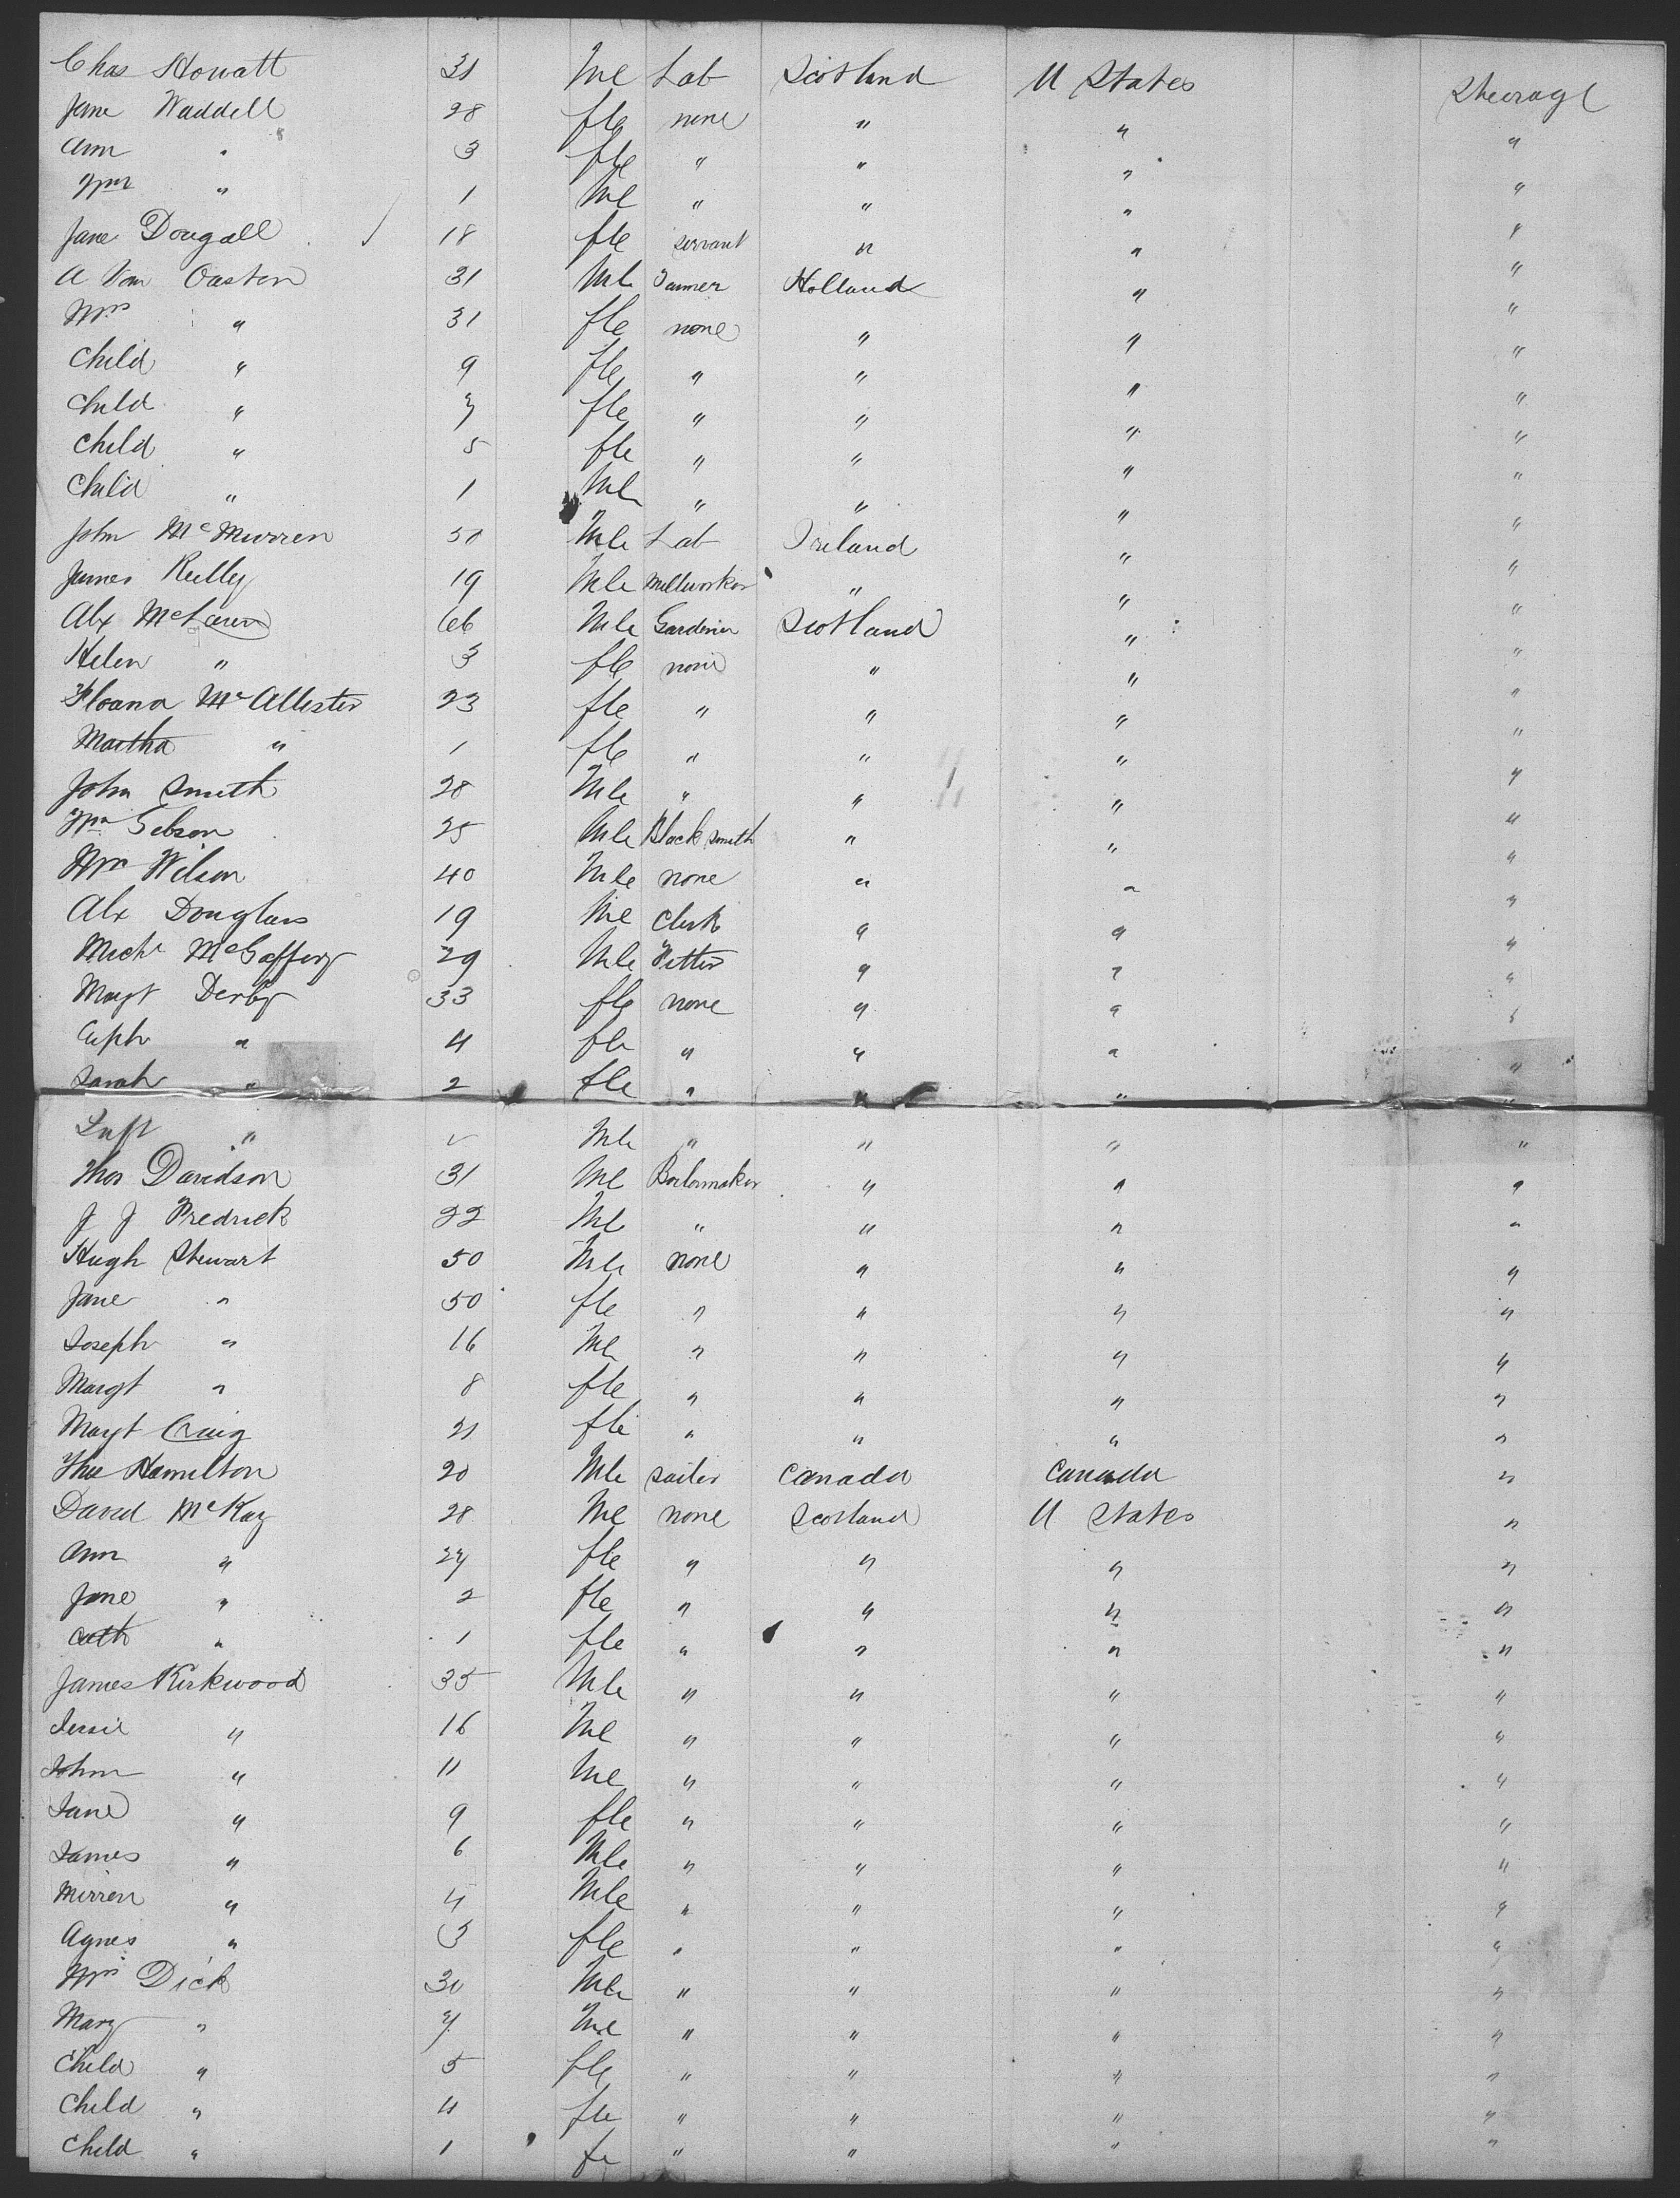 Chas Howatt 31 Mle Lab Scotland U States Steerage
Jane Waddell 28 fle none " " "
Ann " 3 fle " " " "
Wm " 1 Mle " " " "
Jane Dougall 18 fle servant " " "
A Van Oasten 31 Mle Farmer Holland " "
Mrs " 31 fle none " " "
Child " 9 fle " " " "
Child " 7 fle " " " "
Child " 5 fle " " " "
Child " 1 Mle " " " "
John McMurren 50 Mle Lab Ireland " "
James Reilly 19 Mle Millworker " " "
Alx McLaren 66 Mle Gardener Scotland " "
Helen " 3 fle none " " "
McAllister 23 fle " " " "
Martha " 1 fle " " " "
John Smith 28 Mle " " " "
Wm Gibson 25 Mle Black smith " " "
Wm Wilson 40 Mle none " " "
Alx Douglass 19 Mle Clerk " " "
Michl McGaffery 29 Mle Fitter " " "
Magt Derby 33 fle none " " "
Euph " 4 fle " " " "
Sarah " 2 fle " " " "
Inft " Mle " " " "
Thos Davidson 31 Mle Boilermaker " " "
J J Fredrick 22 Mle " " " "
Hugh Stewart 50 Mle none " " "
Jane " 50 fle " " " "
Joseph " 16 Mle " " " "
Margt " 8 fle " " " "
Magt Craig 21 fle " " " "
Thos Hamilton 20 Mle sailor Canada Canada "
David McKay 28 Mle none Scotland U States "
Ann " 27 fle " " " "
Jane " 2 fle " " " "
Cath " 1 fle " " " "
James Kirkwood 35 Mle " " " "
Jessie " 16 Mle " " " "
John " 11 Mle " " " "
Jane " 9 fle " " " "
James " 6 Mle " " " "
Mirren " 4 Mle " " " "
Agnes " 3 fle " " " "
Mrs Dick 30 Mle " " " "
Mary " 7 Mle " " " "
Child " 5 fle " " " "
Child " 4 fle " " " "
Child " 1 fe " " " "